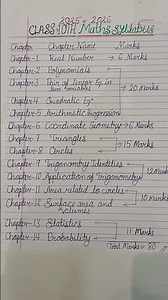 2025 - 2026
CLASS 10TH Maths Syllabus
Chapter Chapter Name Marks
Chapter-1 Real Number → 6 Marks
Chapter-2 Polynomials
Chapter-3 Pair of Linear Eqn in two Variables
20 Marks
Chapter-4 Quadratic Eqn
Chapter-5 Arithmetic Progression
Chapter-6 Coordinate Geometry → 6 Marks
Chapter-7 Triangles
→ 15 Marks
Chapter-8 Circles
Chapter-9 Trigonometry Identities
12 Marks
Chapter-10 Application of Trigonometry
Chapter-11 Area related to circles
10 Marks
Chapter-12 Surface area and Volumes
Chapter-13 Statistics
11 Marks
Chapter-14 Probability
Total Marks = 80